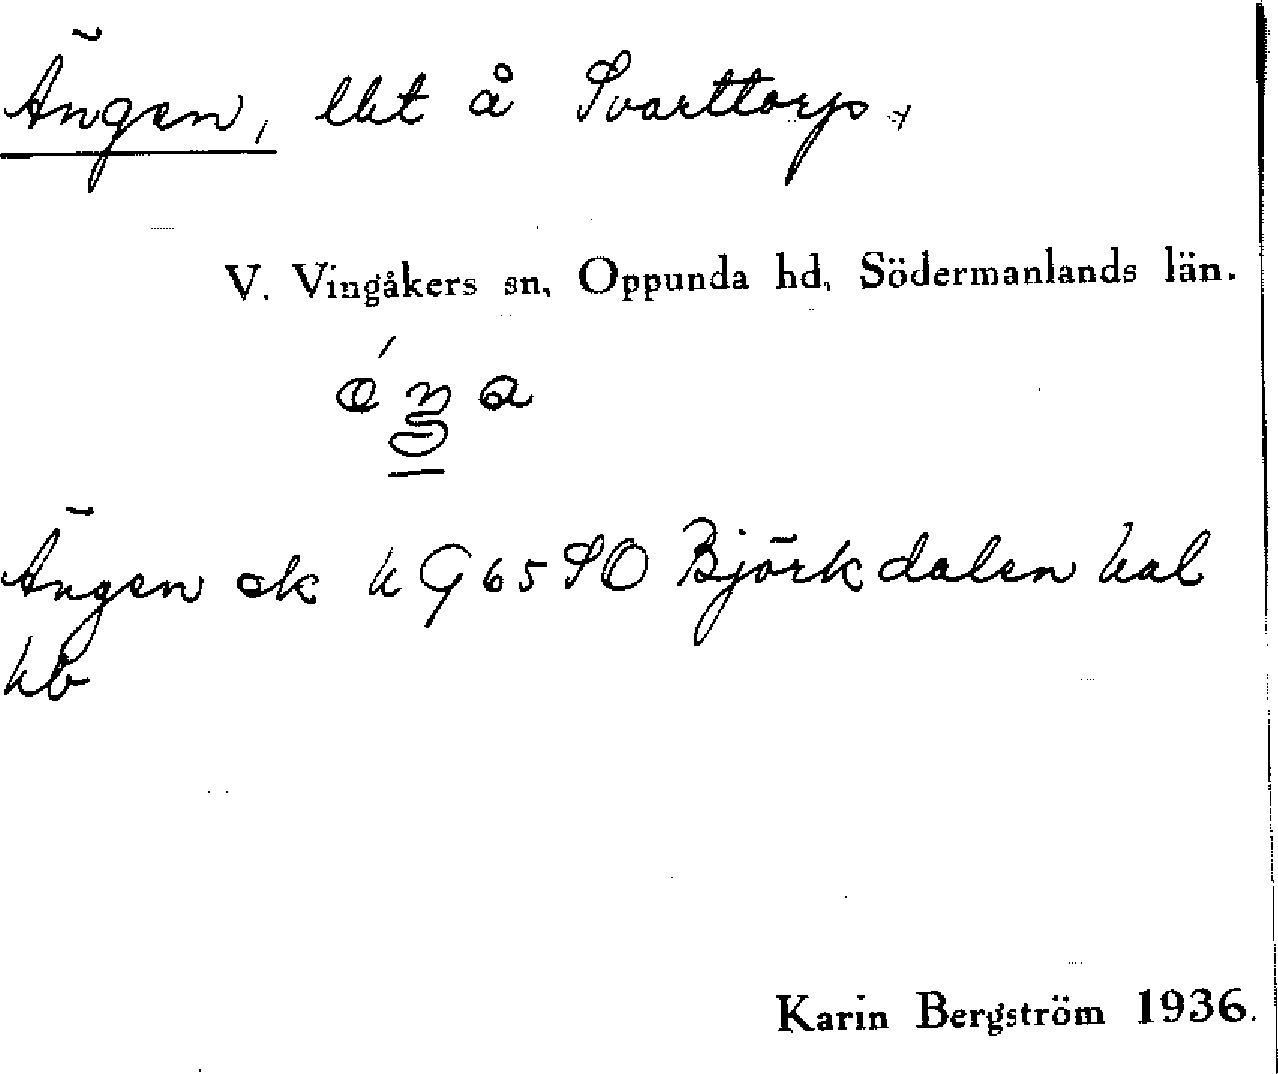 Ängen, lht å Svarttorp.
V. Vingåkers sn, Oppunda hd, Södermanlands län.
Ängen ek k G 65 SO Björkdalen hal
kb
Karin Bergström 1936.